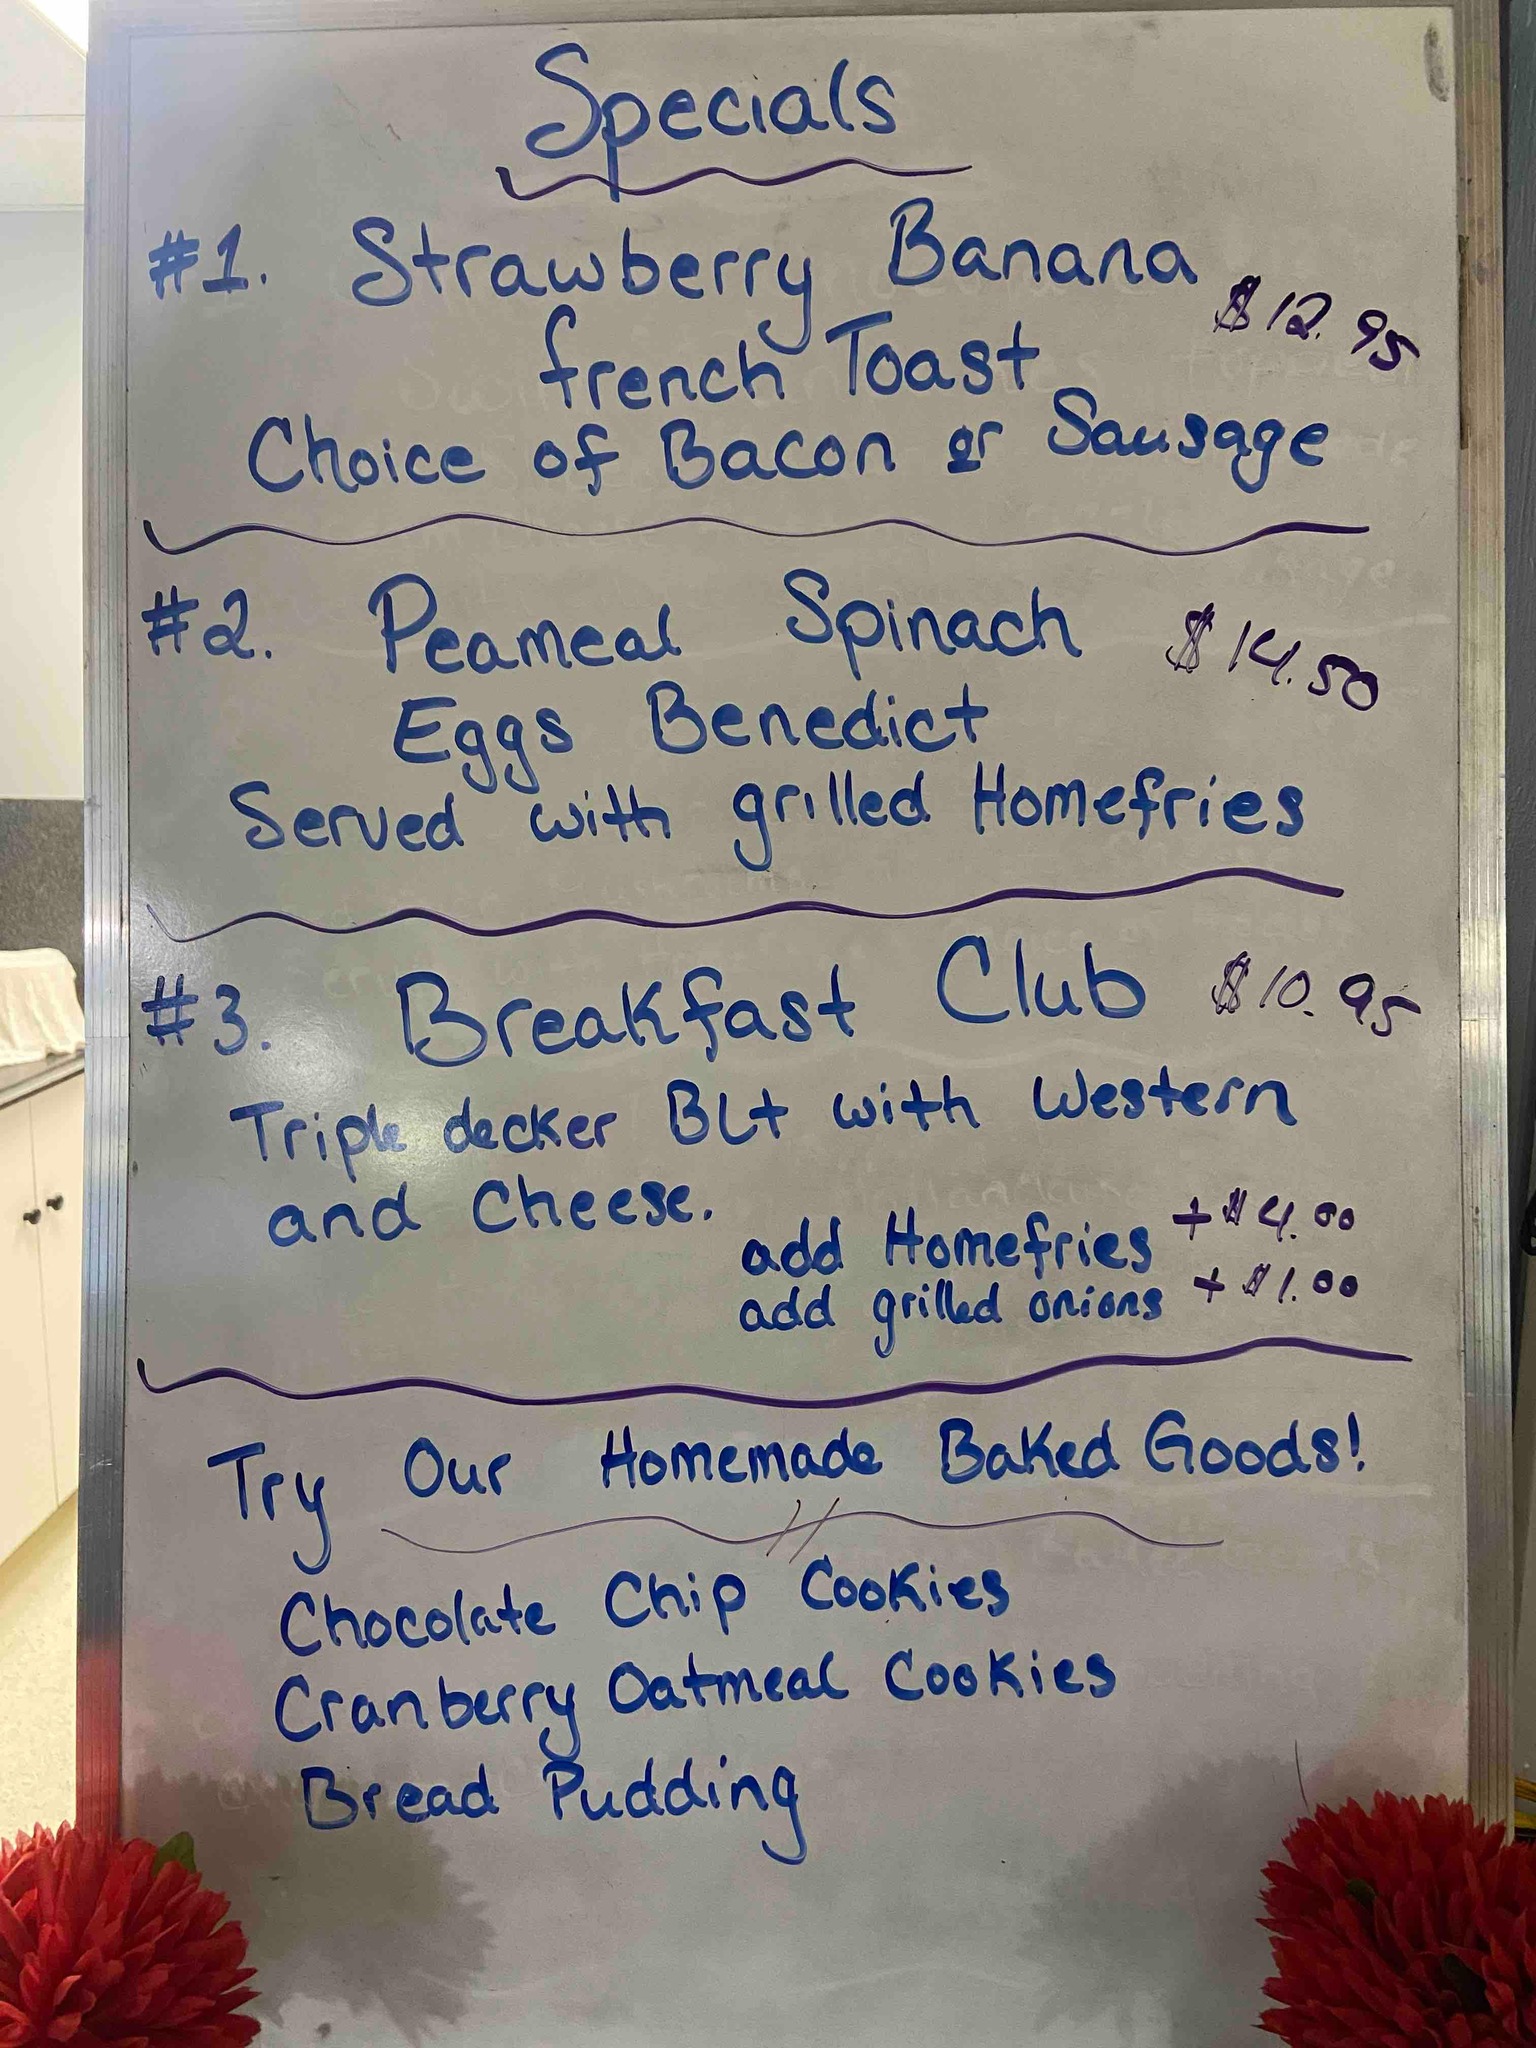 Specials
#1. Strawberry Banana $12.95
french Toast
Choice of Bacon or Sausage
#2. Peameal Spinach $14.50
Eggs Benedict
Served with grilled Homefries
#3. Breakfast Club $10.95
Triple decker BLt with Western
and Cheese.
add Homefries +$4.00
add grilled onions +$1.00
Try Our Homemade Baked Goods!
Chocolate Chip Cookies
Cranberry Oatmeal Cookies
Bread Pudding